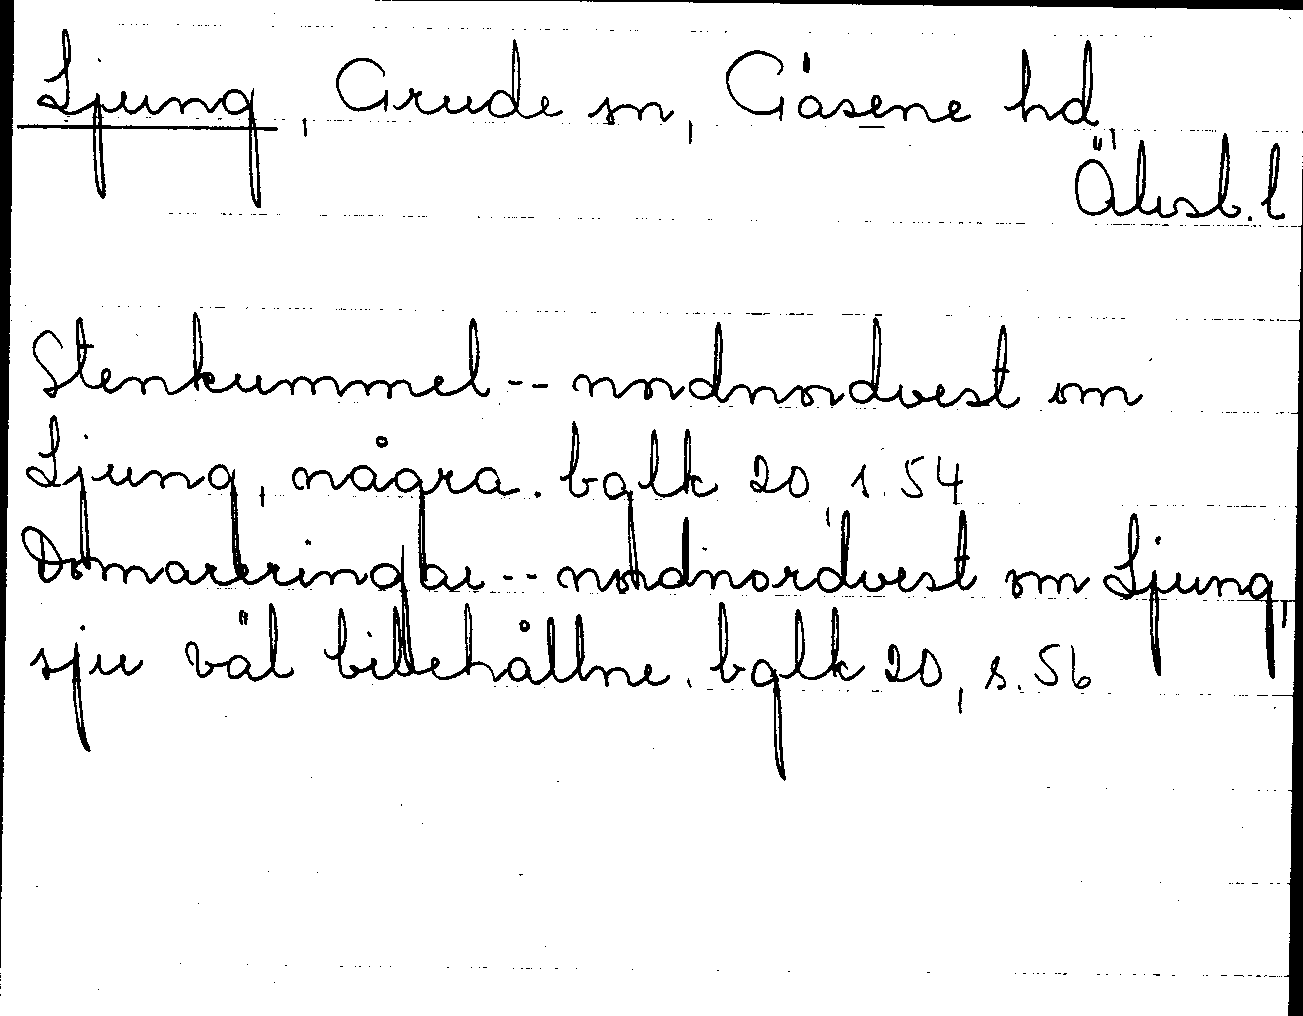 Ljung, Grude sn, Gäsene hd,
Älvsb. l
Stenkummel -- nordnordvest om
Ljung, några. bglk 20, s. 54
Domareringar -- nordnordvest om Ljung,
sju väl bibehållne. bglk 20, s. 56